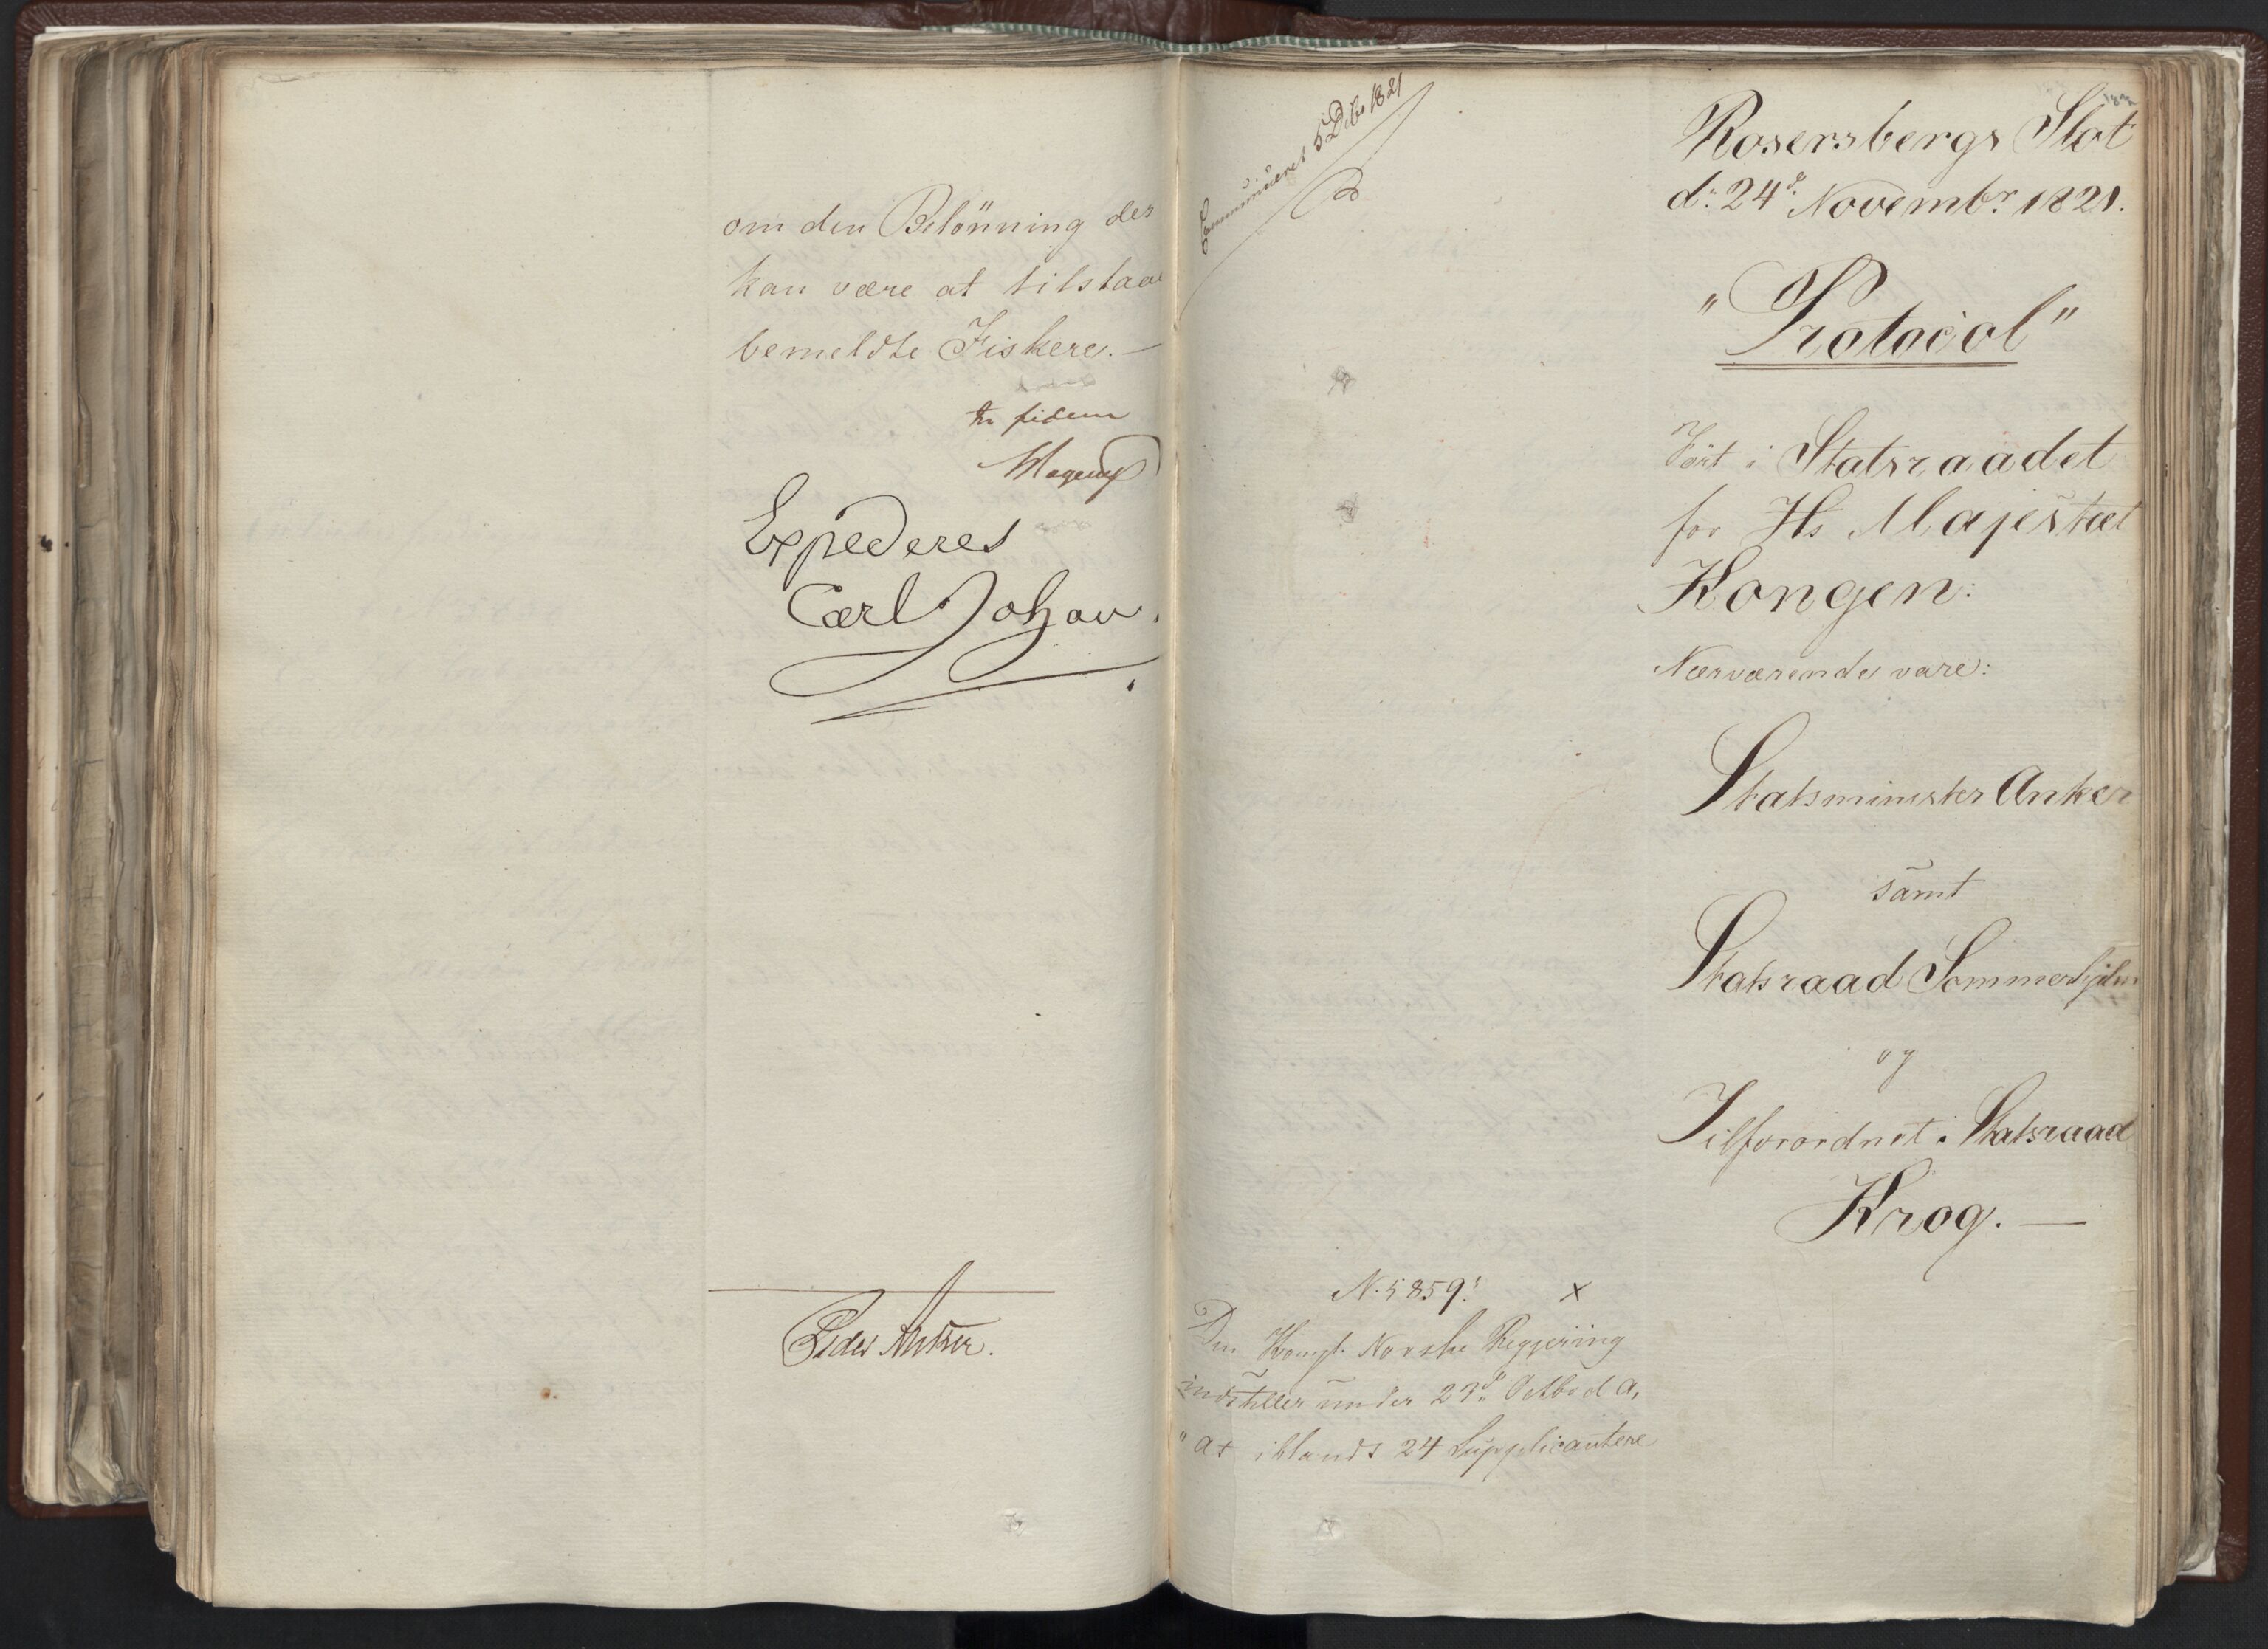 om den Belönning der
kan være at tilstaae
bemeldte Fiskere. —
in fidem
Expederes
Carl Johan.
Peder Anker.
Communiceret 5 Dcbr 1821
Rosersbergs Slot
d: 24d: Novembr 1821.
"Protocol"
Fört i Statsraadet
for Hs Majestæt
Kongen:
Nærværende vare:
Statsminister Anker
samt
Statsraad Sommerhjelm
og
Tilforordnet i Statsraad
Krog. —
N. 5859. x
Den Kongl. Norske Regjering
indstiller under 23d: Octbr d. A.
" at iblandt 24 Supplicantere